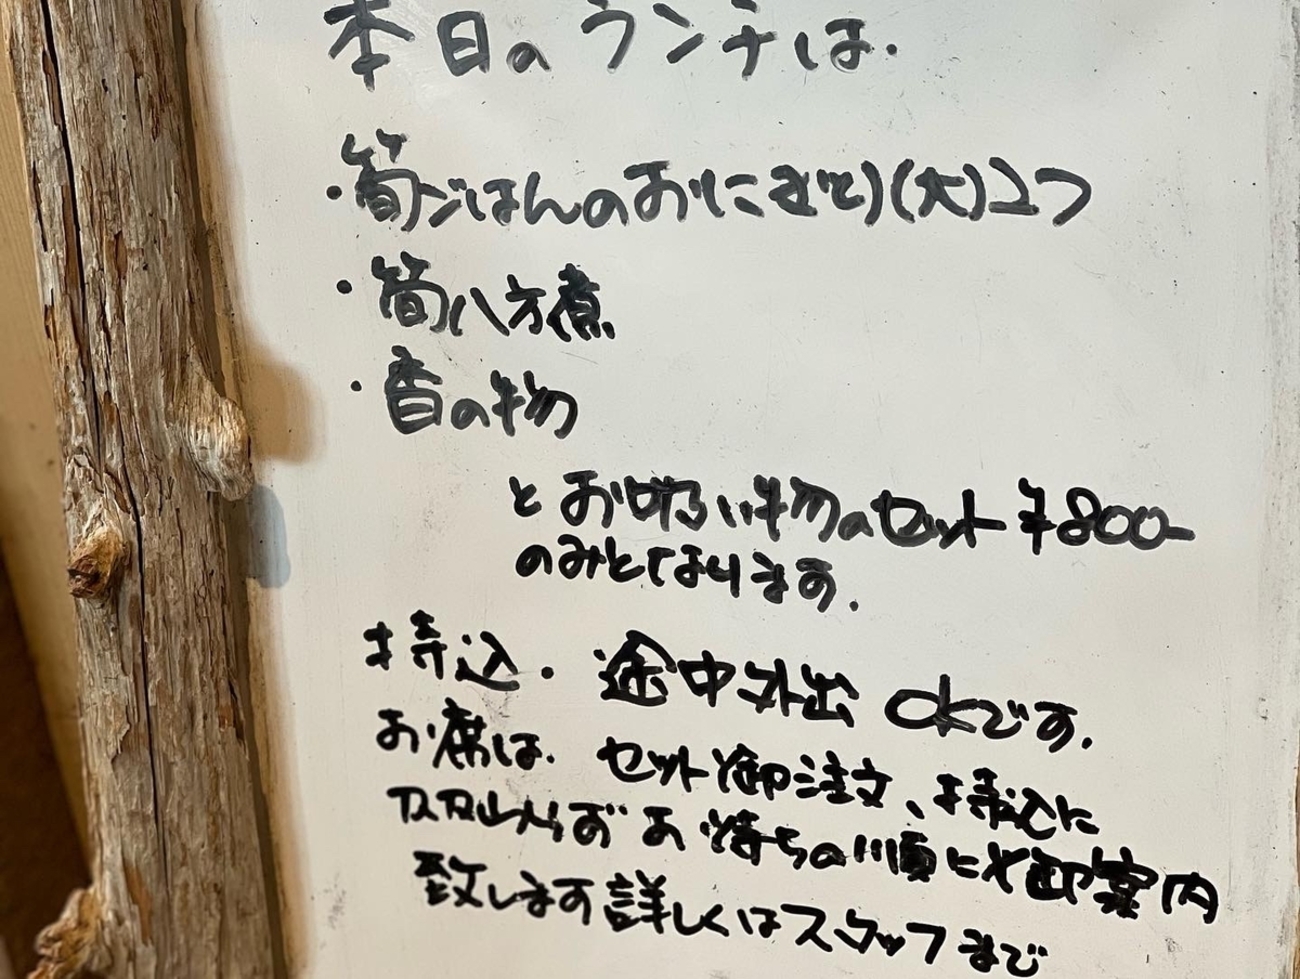 本日のランチは.
・筍ごはんのおにぎり(大)2つ
・筍八方煮
・香の物
とお吸い物のセット¥800-
のみとなります.
持込・途中外出okです.
お席は.セット御注文、持込に
かかわらずお待ちの順に御案内
致します詳しくはスタッフまで